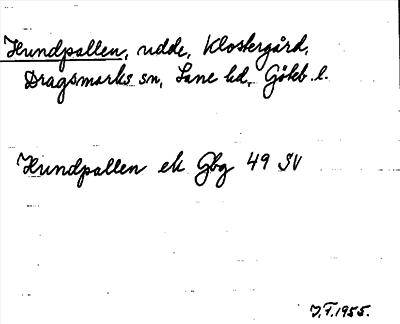 Hundpallen, udde, Klostergård,
Dragsmarks sn, Lane hd, Gökb. l.
Hundpallen ek Gbg 49 SV
J.F. 1955.